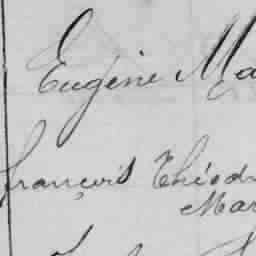 Eugène Ma
François Théod
Mar